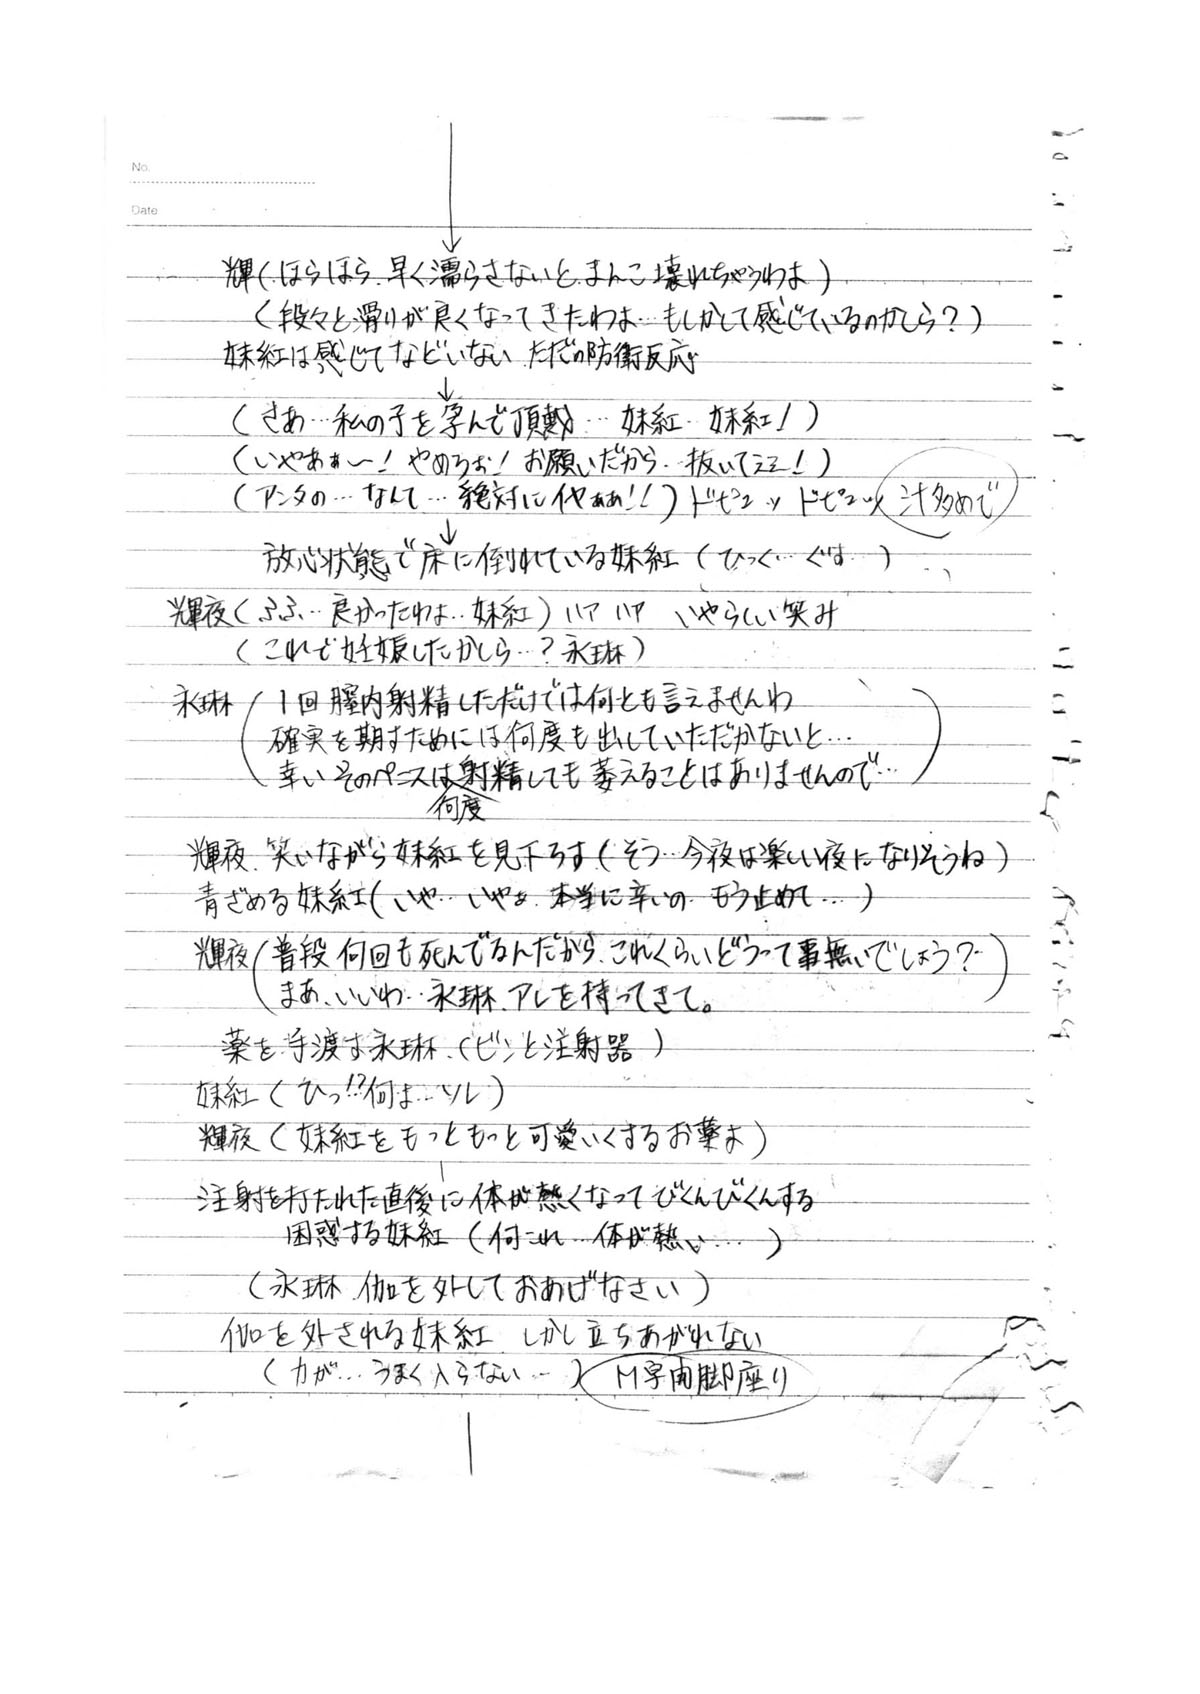 No.
Date
輝(ほらほら、早く濡らさないと、まんこ壊れちゃうわよ)
(段々と滑りが良くなってきたわよ…もしかして感じているのかしら?)
妹紅は感じてなどいない ただの防衛反応
↓
(さあ…私の子を孕んで頂戴…妹紅…妹紅!)
(いやあぁ〜! やめろぉ! お願いだから…抜いてぇェ!)
(アンタの…なんて…絶対にイヤぁあ!!) ドピュッ ドピュッ 汁多めで
↓
放心状態で床に倒れている妹紅 (ひっく…ぐす…)
輝夜(ふふ…良かったわよ…妹紅) ハァ ハァ いやらしい笑み
(これで妊娠したかしら…? 永琳)
永琳(1回膣内射精しただけでは何とも言えませんわ
確実を期すためには何度も出していただかないと…
幸い そのペニスは何度射精しても萎えることはありませんので…)
輝夜、笑いながら妹紅を見下ろす(そう…今夜は楽しい夜になりそうね)
青ざめる妹紅(いや…いやぁ、本当に辛いの もう止めて…)
輝夜(普段何回も死んでるんだから、これくらいどうって事無いでしょう?
まあ、いいわ…永琳、アレを持ってきて。)
薬を手渡す永琳(ビンと注射器)
妹紅(ひっ!?何よ…ソレ)
輝夜(妹紅をもっともっと可愛いくするお薬よ)
注射を打たれた直後に体が熱くなってびくんびくんする
困惑する妹紅(何これ…体が熱い…)
(永琳、伽を外しておあげなさい)
伽を外される妹紅、しかし立ちあがれない
(力が…うまく入らない…) M字開脚座り